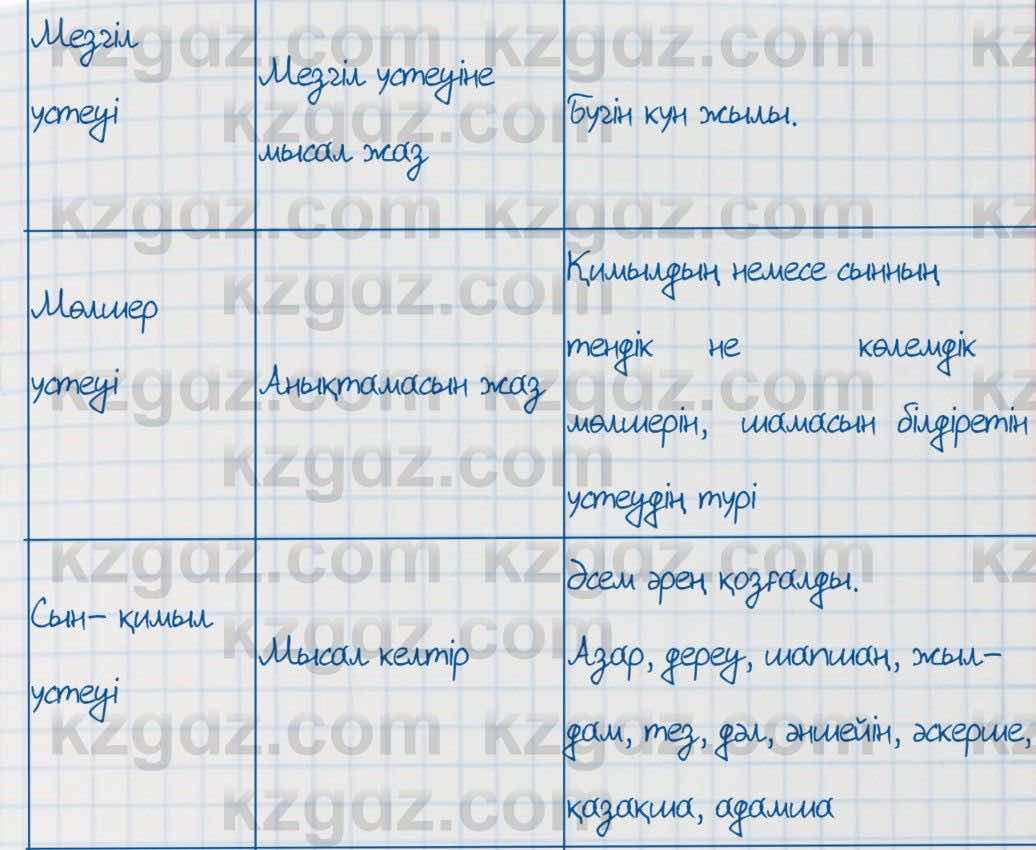 Мезгіл
үстеуі
Мезгіл үстеуіне
мысал жаз
Бүгін күн жылы.
Мөлшер
үстеуі
Анықтамасын жаз
Қимылдың немесе сынның
теңдік не көлемдік
мөлшерін, шамасын білдіретін
үстеудің түрі
Сын- қимыл
үстеуі
Мысал келтір
Әсем әрең қозғалды.
Азар, дереу, шапшаң, жыл-
дам, тез, дәл, әншейін, әскерше,
қазақша, адамша
kzgdz.com